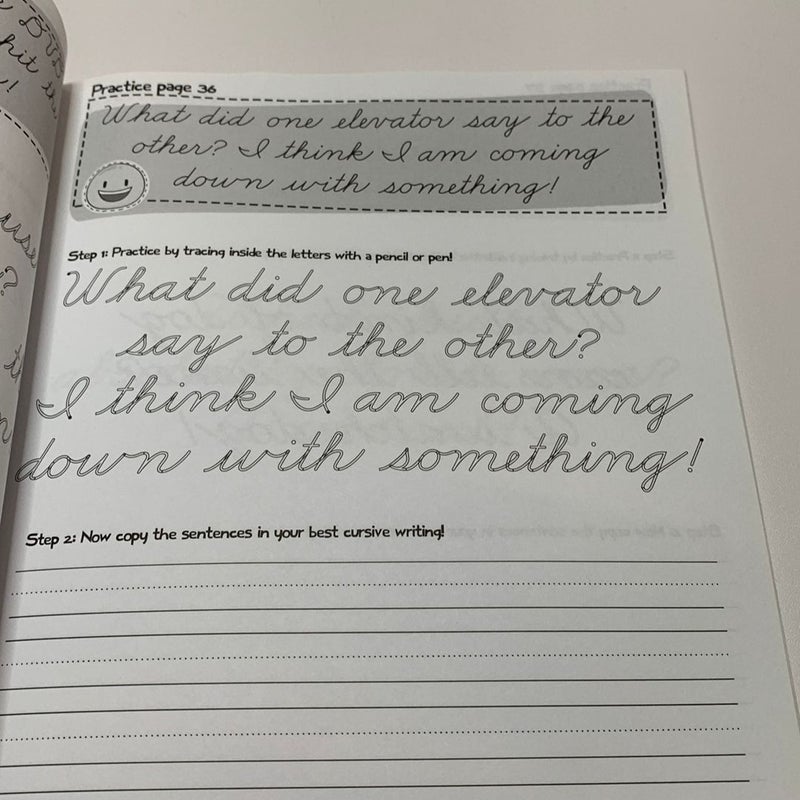 Practice page 36
What did one elevator say to the
other? I think I am coming
down with something!
Step 1: Practice by tracing inside the letters with a pencil or pen!
What did one elevator
say to the other?
I think I am coming
down with something!
Step 2: Now copy the sentences in your best cursive writing!